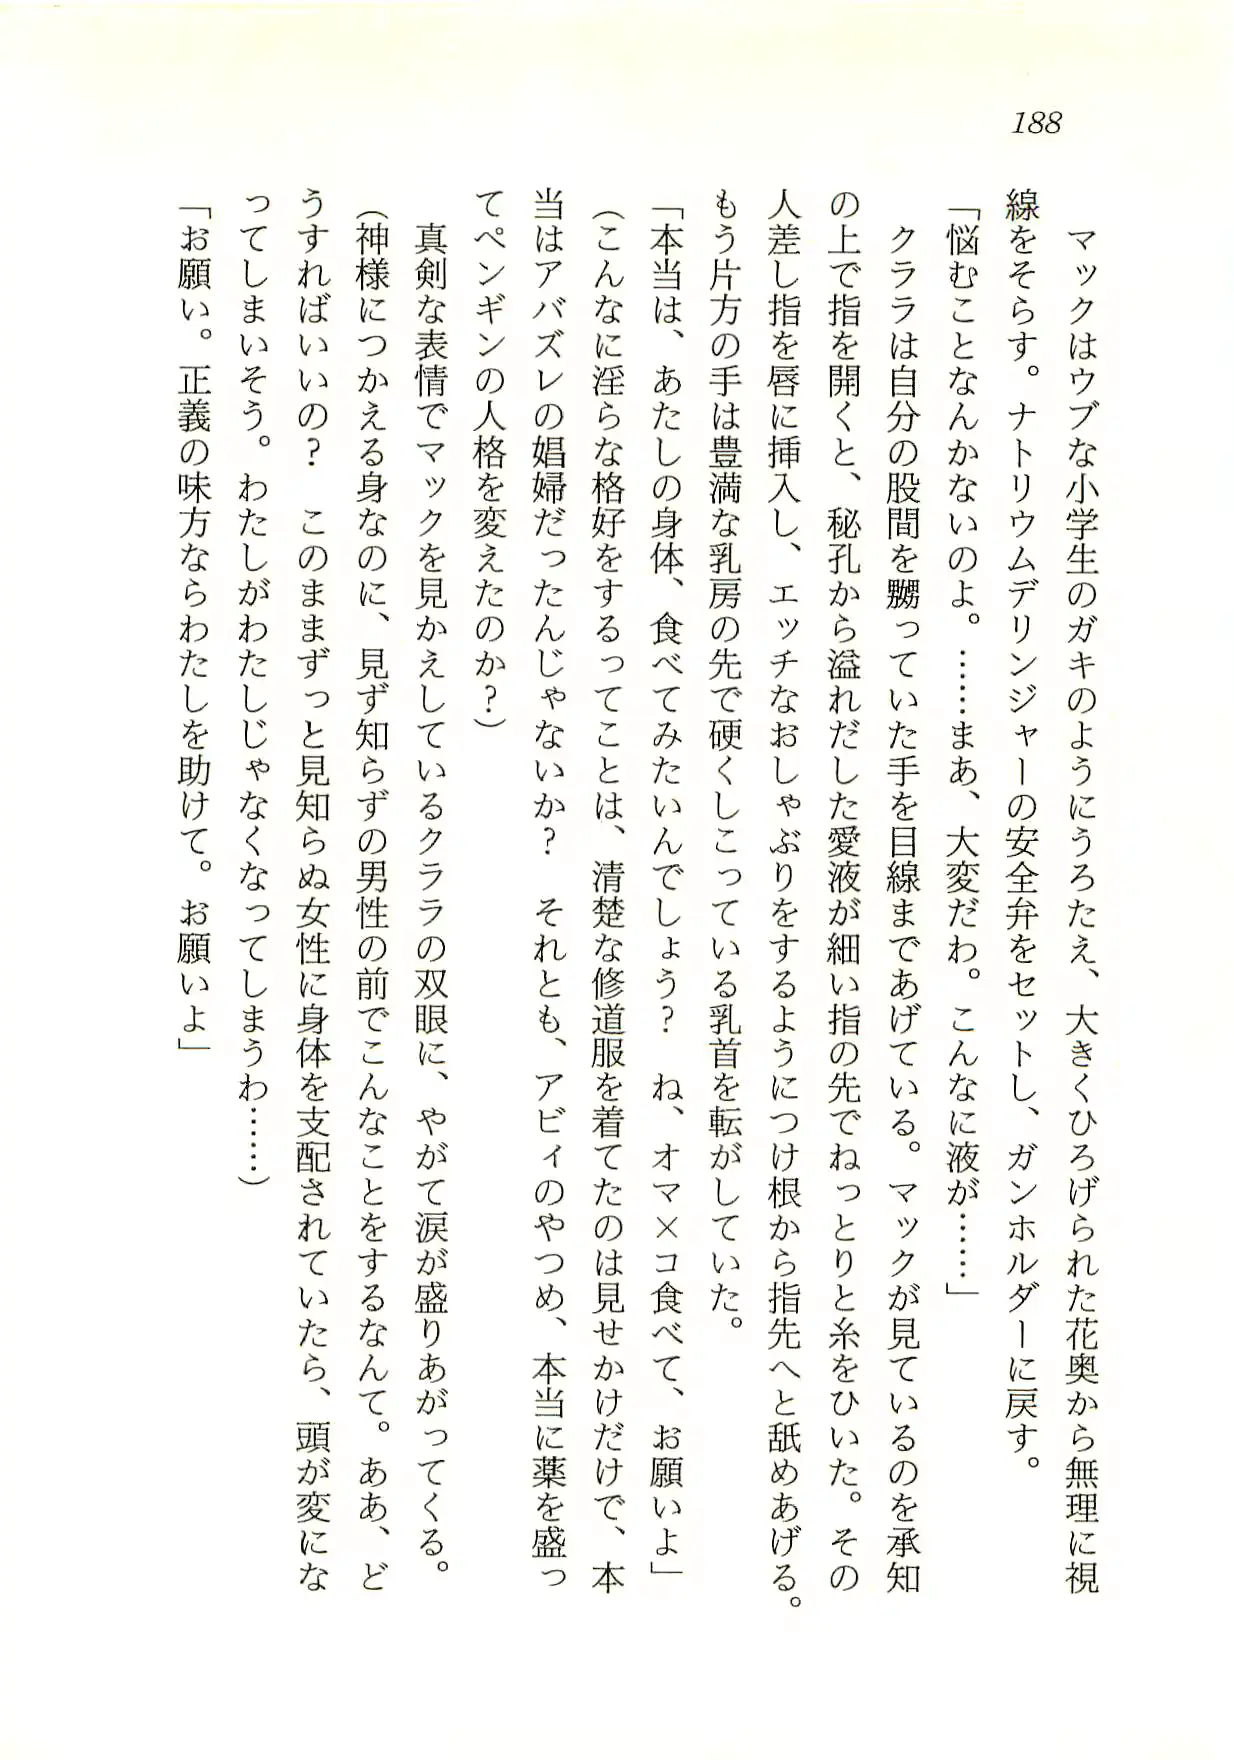 188
　マックはウブな小学生のガキのようにうろたえ、大きくひろげられた花奥から無理に視
線をそらす。ナトリウムデリンジャーの安全弁をセットし、ガンホルダーに戻す。
「悩むことなんかないのよ。……まあ、大変だわ。こんなに液が……」
　クララは自分の股間を嬲っていた手を目線まであげている。マックが見ているのを承知
の上で指を開くと、秘孔から溢れだした愛液が細い指の先でねっとりと糸をひいた。その
人差し指を唇に挿入し、エッチなおしゃぶりをするようにつけ根から指先へと舐めあげる。
もう片方の手は豊満な乳房の先で硬くしこっている乳首を転がしていた。
「本当は、あたしの身体、食べてみたいんでしょう？　ね、オマ×コ食べて、お願いよ」
（こんなに淫らな格好をするってことは、清楚な修道服を着てたのは見せかけだけで、本
当はアバズレの娼婦だったんじゃないか？　それとも、アビィのやつめ、本当に薬を盛っ
てペンギンの人格を変えたのか？）
　真剣な表情でマックを見かえしているクララの双眼に、やがて涙が盛りあがってくる。
（神様につかえる身なのに、見ず知らずの男性の前でこんなことをするなんて。ああ、ど
うすればいいの？　このままずっと見知らぬ女性に身体を支配されていたら、頭が変にな
ってしまいそう。わたしがわたしじゃなくなってしまうわ……）
「お願い。正義の味方ならわたしを助けて。お願いよ」